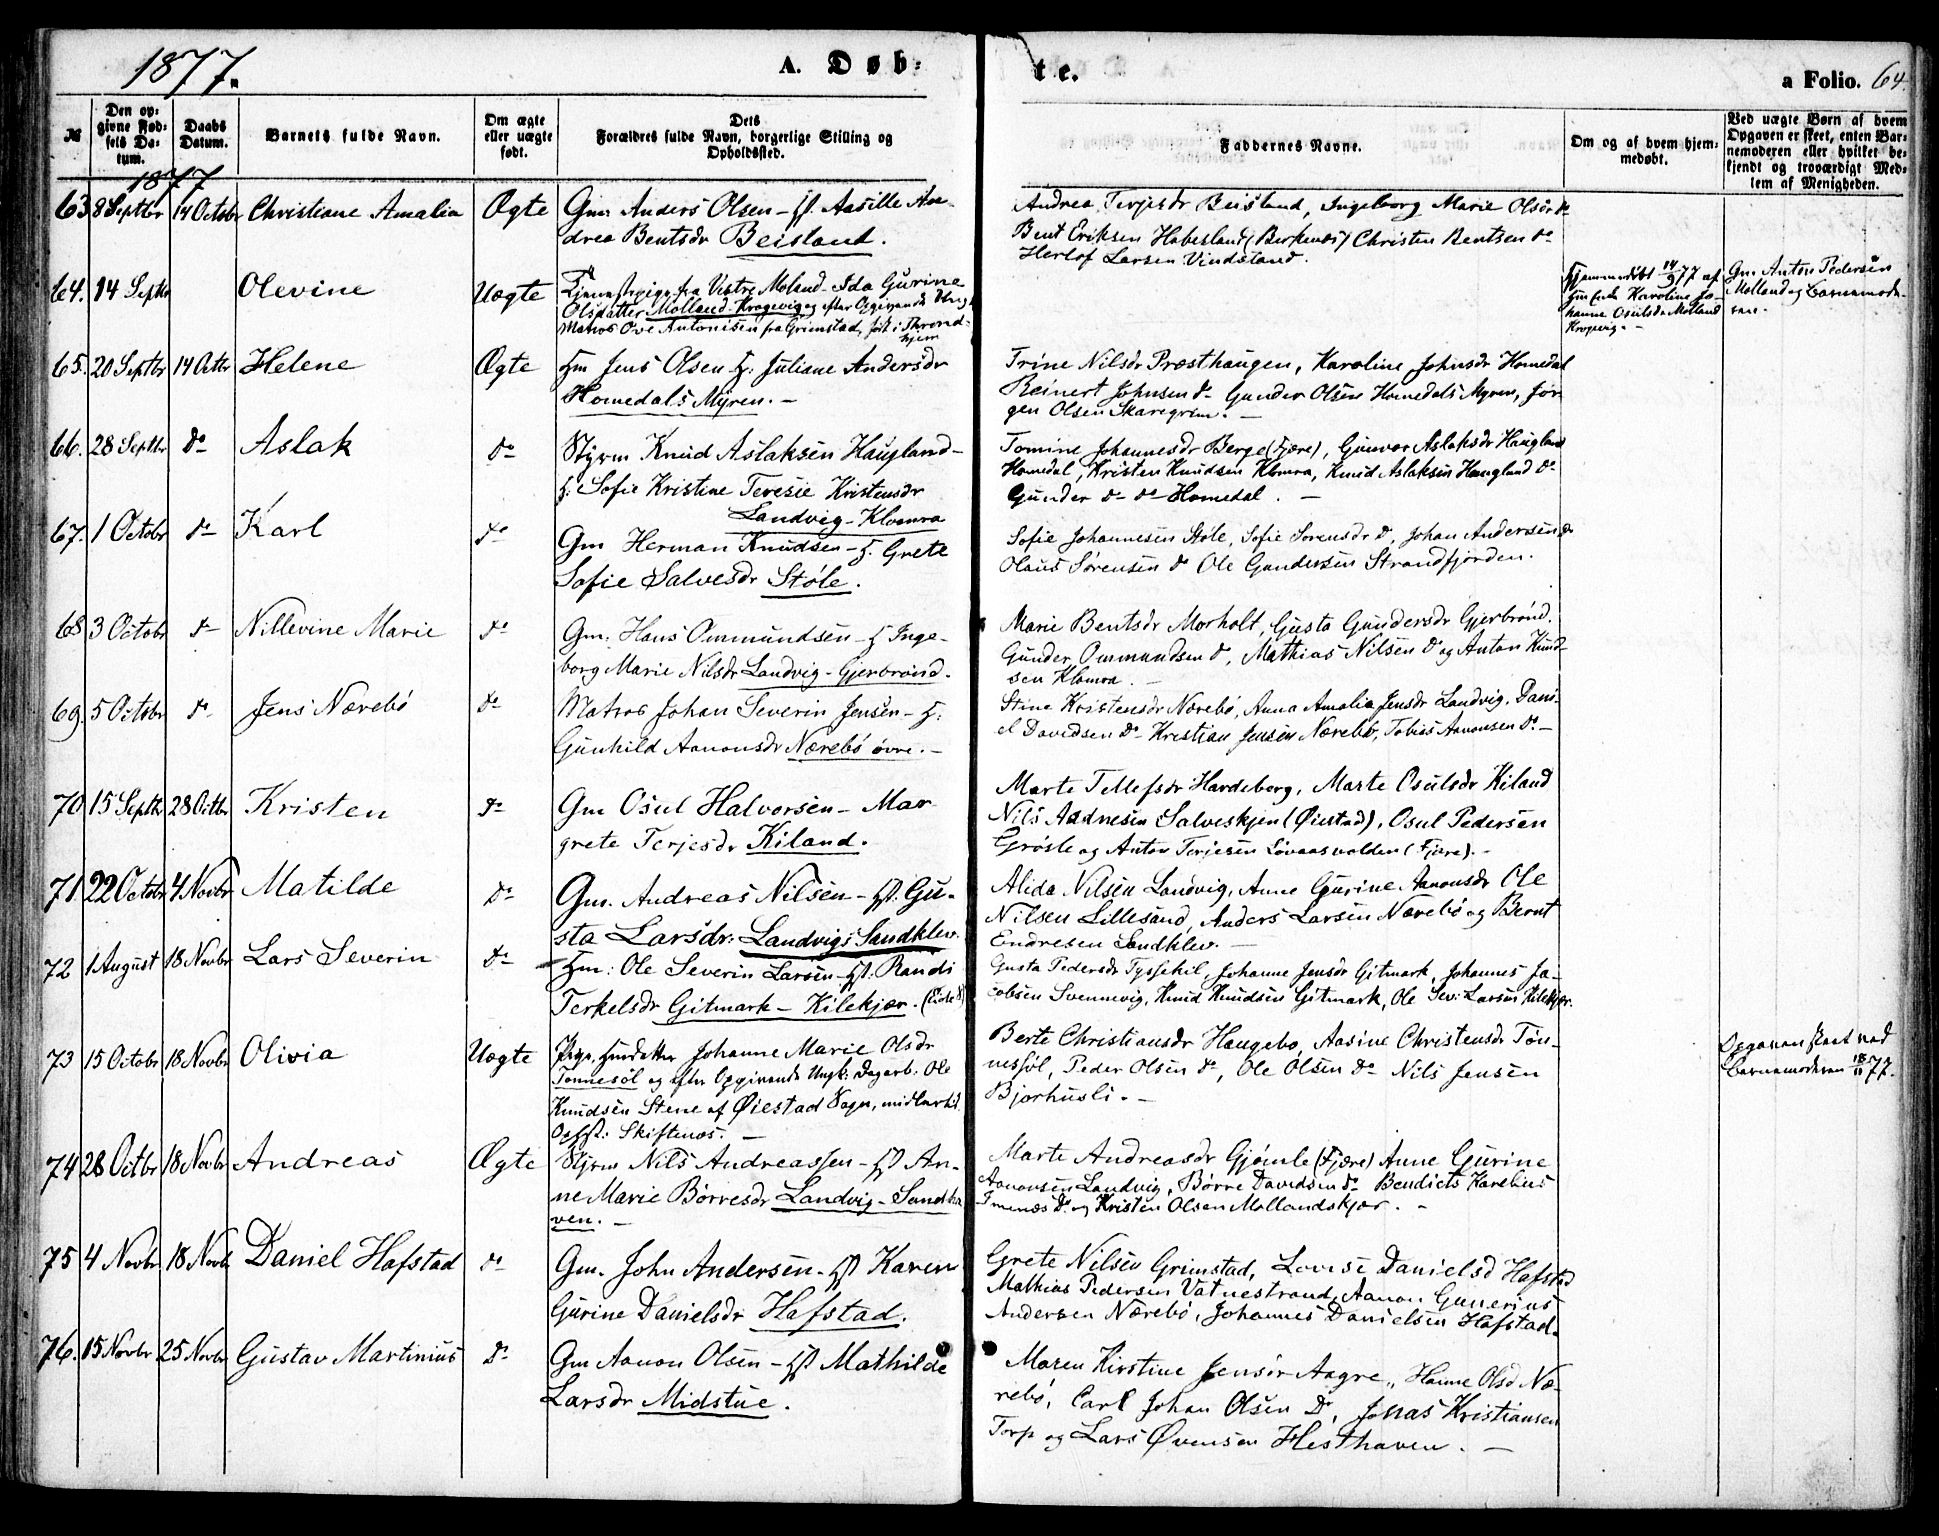 1877.
A. Døb-
te.
a Folio. 64.
№
Den op-
givne Fød-
sels Da-
tum.
Daabs
Datum.
Barnets fulde Navn.
Om ægte
eller uægte
født.
Dets
Forældres fulde Navn, borgerlige Stilling og
Opholdssted.
Faddernes Navne.
Om og af hvem hjem-
medøbt.
Ved uægte Børn af hvem
Opgaven er skeet, enten Bar-
nemoderen eller hvilket be-
kjendt og troværdigt Med-
lem af Menigheden.
1877
63 8 Septbr 14 Octobr Christiane Amalia Ægte Gm. Anders Olsen - Hst. Aasille An-
drea Bentsdr Beisland.
Andrea Terjesdr Beisland, Ingeborg Marie Olsdr do
Bent Eriksen Habesland (Birkenæs) Christen Bentsen do
Herlof Larsen Vindsland.
64. 14 Septbr Olevine Uægte Tjenestepige fra Vestre Moland Ida Gurine
Olsdatter Molland-Krogevig og efter Opgivende Ungk.
Matros Ove Antonisen fra Grimstad, født i Thrond-
hjem
Hjemmedøbt 14/9 77 af
Karoline Jo-
hanne Osulsdr Molland
Krogevig. -
Gm. Anton Pedersen
Molland og Barnemode-
ren.
65. 20 Septbr 14 Octbr Helene Ægte Hm Jens Olsen H: Juliane Andersdr
Homedals Myren. -
Trine Nilsdr Præsthaugen, Karoline Johnsdr Homedal
Reinert Johnsen do Gunder Olsen Homedals Myren, Jør
gen Olsen Skaregrøm. -
66. 28 Septbr do Aslak do Styrm Knud Aslaksen Haugland -
H: Sofie Kristine Teresie Kristensdr
Landvig - Klomra
Tomine Johannesdr Berge (Fjære), Gunvor Aslaksdr Haugland
Homedal, Kristen Knudsen Klomra, Knud Aslaksen Haugland do
Gunder do do Homedal. -
67. 1 Octobr do Karl do Gm Herman Knudsen - H. Grete
Sofie Salvesdr Støle.
Sofie Johannesen Støle, Sofie Sørensdr do, Johan Andersen do
Olaus Sørensen do Ole Gundersen Strandfjorden.
68 3 Octobr do Nillevine Marie do Gm: Hans Ommundsen - H Inge-
borg Marie Nilsdr Landvig - Gjerbrønd.
Marie Bentsdr Morholt, Gusta Gundersdr Gjerbrønd.
Gunder Ommundsen do, Mathias Nilsen do og Anton Knud-
sen Klomra. -
69. 5 Octobr do Jens Nærebø do Matros Johan Severin Jensen - H:
Gunhild Aanonsdr Nærebø øvre. -
Stine Kristensdr Nærebø, Anna Amalia Jensdr Landvig, Dani-
el Davidsen do - Kristian Jensen Nærebø, Tobias Aanonsen do. -
70 15 Septbr 28 Octbr Kristen do Gm Osul Halvorsen - Mar
grete Terjesdr Kiland.
Marte Tellefsdr Hardeberg, Marte Osulsdr Kiland
Nils Aadnesen Salveskjen (Øiestad), Osul Pedersen
Grøsle og Anton Terjesen Løvaasvolden (Fjære). -
71 22 Octobr 4 Novbr Matilde do Gm. Andreas Nilsen - Hst. Gu-
sta Larsdr: Landvigs Sandklev.
Alida Nilsen Landvig, Anne Gurine Aanonsdr Ole
Nilsen Lillesand, Anders Larsen Nærebø og Bernt
Endresen Sandklev. -
72 1 August 18 Novbr Lars Severin do Hm: Ole Severin Larsen - Hst: Randi
Terkelsdr Gitmark - Kilekjær.
Gusta Pedersdr Tyssekil, Johanne Jensdr Gitmark, Johannes Ja-
cobsen Svennevig, Knud Knudsen Gitmark, Ole Sev: Larsen Kilekjær.
73 15 Octobr 18 Novbr Olivia Uægte Pige, Husdatter Johanne Marie Olsdr
Tønnesøl og efter Opgivende Ungk: Dagarb. Ole
Knudsen Stene af Øiestad Sogn, midlertid.
Opst: Skiftenæs. -
Berte Christiansdr Haugebo, Aasine Christensdr Tøn-
nesøl, Peder Olsen do, Ole Olsen do Nils Jensen
Bjorhusli. -
Opgaven skeet ved
Barnemoderen 18/11 77.
74 28 Octbr 18 Novbr Andreas Ægte Styrm Nils Andreassen - Hst An-
ne Marie Børresdr Landvig - Sandha
ven. -
Marte Andreasdr Gjømle (Fjære) Anne Gurine
Aanonsen Landvig, Børre Davidsen do Bendicts Karelius
do og Kristen Olsen Mollandskjær. -
75 4 Novbr 18 Novb Daniel Hafstad do Gm. John Andersen - Hst Karen
Gurine Danielsdr Hafstad.
Grete Nilsen Grimstad, Lovise Danielsd Hafstad
Mathias Pedersen Vatnestrand, Aanon Gunerius
Andersen Nærebø, Johannes Danielsen Hafstad.
76. 15 Novbr 25 Novbr Gustav Martinius do Gm Aanon Olsen - Hst Mathilde
Larsdr Midstue.
Maren Kirstine Jensdr Aagre, Hanne Olsd Næ-
rebø, Carl Johan Olsen do, Jonas Kristiansen
Torp og Lars Øvensen Hesthaven. -